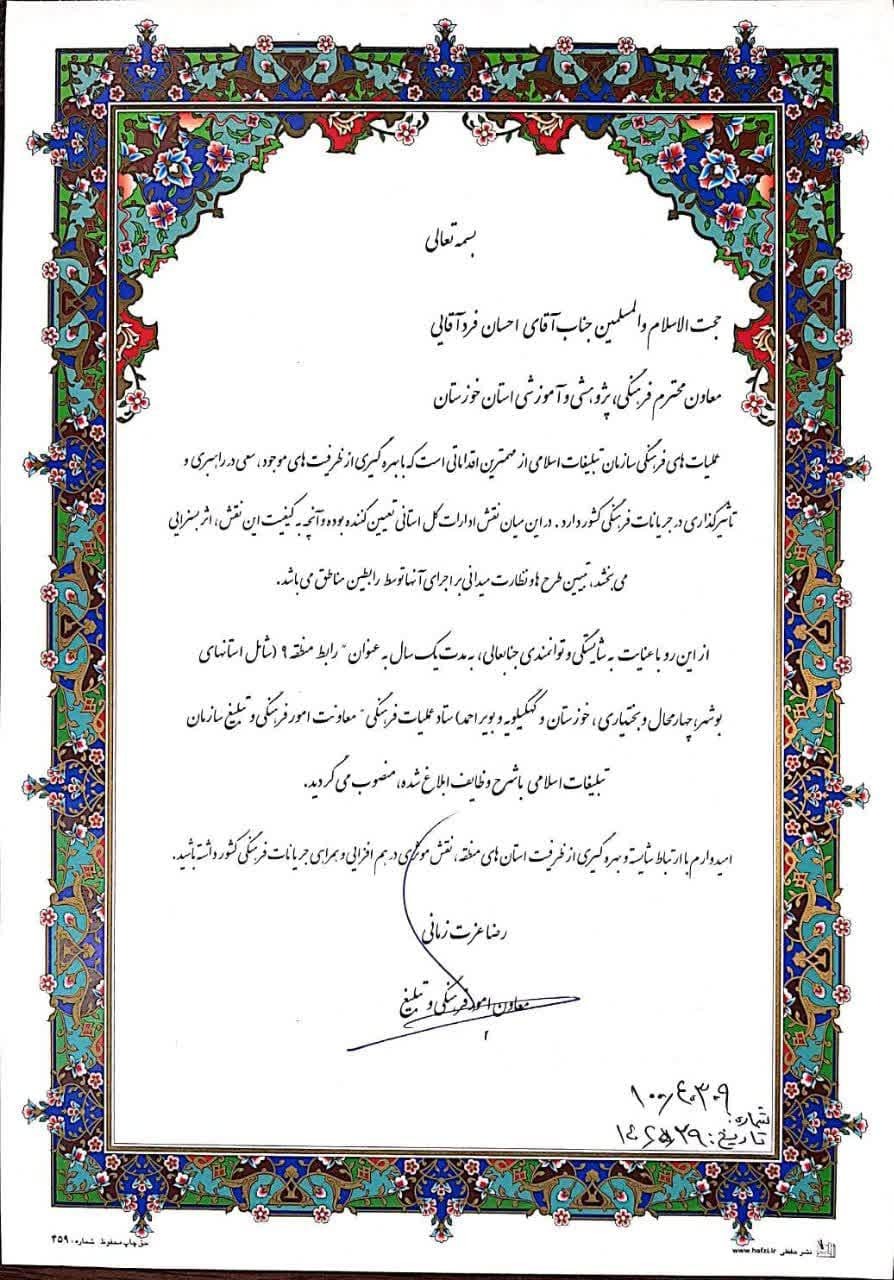 بسمه تعالی
حجت الاسلام والمسلمین جناب آقای احسان فرد آقایی
معاون محترم فرهنگی، پژوهشی و آموزشی استان خوزستان
عملیات های فرهنگی سازمان تبلیغات اسلامی از مهمترین اقداماتی است که با بهره گیری از ظرفیت های موجود، سعی در راهبری و
تاثیرگذاری در جریانات فرهنگی کشور دارد. در این میان نقش ادارات کل استانی تعیین کننده بوده و آنچه به کیفیت این نقش، اثر بسزایی
می بخشد، تبیین طرح ها و نظارت میدانی بر اجرای آنها توسط رابطین مناطق می باشد.
از این رو با عنایت به شایستگی و توانمندی جنابعالی، به مدت یک سال به عنوان "رابط منطقه ۹ (شامل استانهای
بوشهر، چهارمحال و بختیاری، خوزستان و کهگیلویه و بویراحمد) ستاد عملیات فرهنگی" معاونت امور فرهنگی و تبلیغ سازمان
تبلیغات اسلامی با شرح وظایف ابلاغ شده، منصوب می گردید.
امیدوارم با ارتباط شایسته و بهره گیری از ظرفیت استان های منطقه، نقش موثری در هم افزایی و همراهی جریانات فرهنگی کشور داشته باشید.
رضا عزت زمانی
معاون امور فرهنگی و تبلیغ
شماره:
تاریخ:
حق چاپ محفوظ شماره: ۴۵۹
www.hafzi.ir نشر حفظی